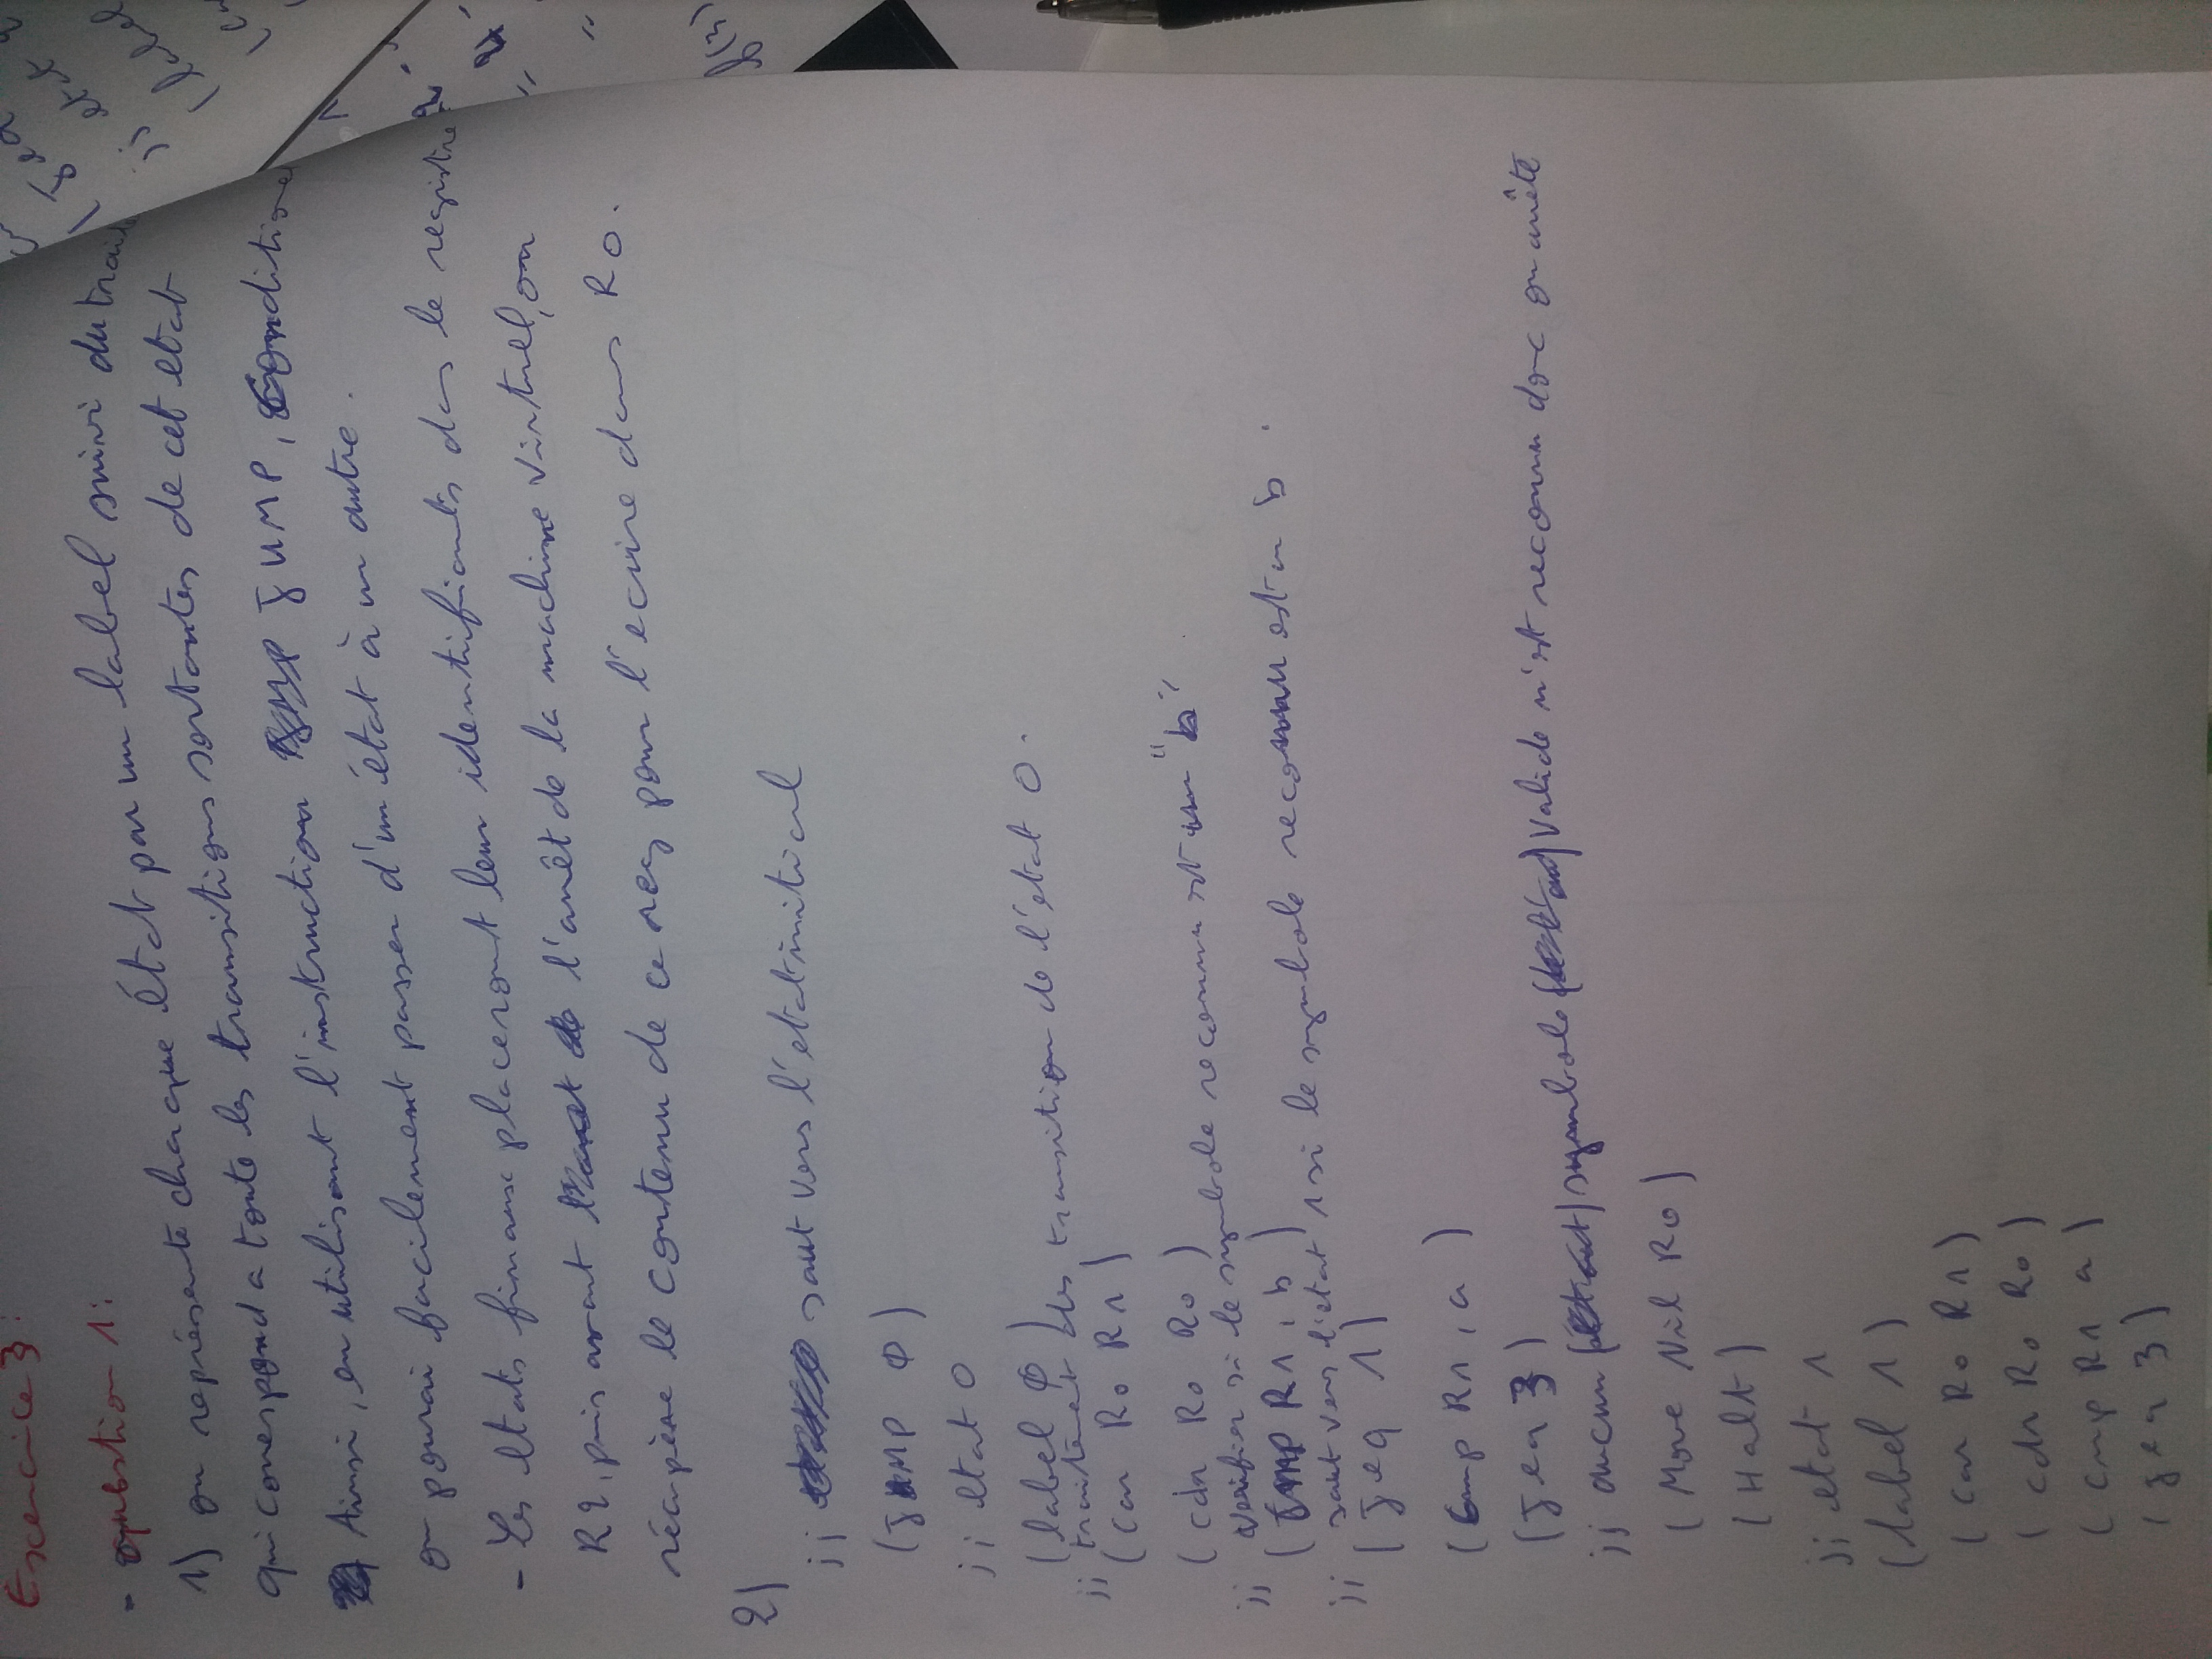 Exercice 3:
- question 1:
1) on représente chaque état par un label suivi du trait
qui correspond a toute les transitions sortantes de cet etat
Ainsi, en utilisant l'instruction JUMP, condition
on pourai facilement passer d'un état à un autre.
- Les etats finaux placeront leur identifiants dans le registre
R2, puis avant l'arrêt de la machine virtuel, on
récupère le contenu de ce reg pour l'ecrire dans R0.
2)
;; saut vers l'etat initial
(JUMP 0)
;; etat 0
(label 0)
;; traitement des transition de l'etat 0.
(car R0 R1)
(cdr R0 R0)
;; verifier si le symbole reconnu est un "b"
(Cmp R1, b)
;; saut vers l'etat 1 si le symbole reconnu est un b.
(Jeq 1)
(Cmp R1, a)
(Jeq 3)
;; aucun symbole valide n'est reconnu donc on arrête
(Move Nil R0)
(Halt)
;; etat 1
(label 1)
(car R0 R1)
(cdr R0 R0)
(cmp R1 a)
(jeq 3)
(Jeq
;; etat
(label
f(3)